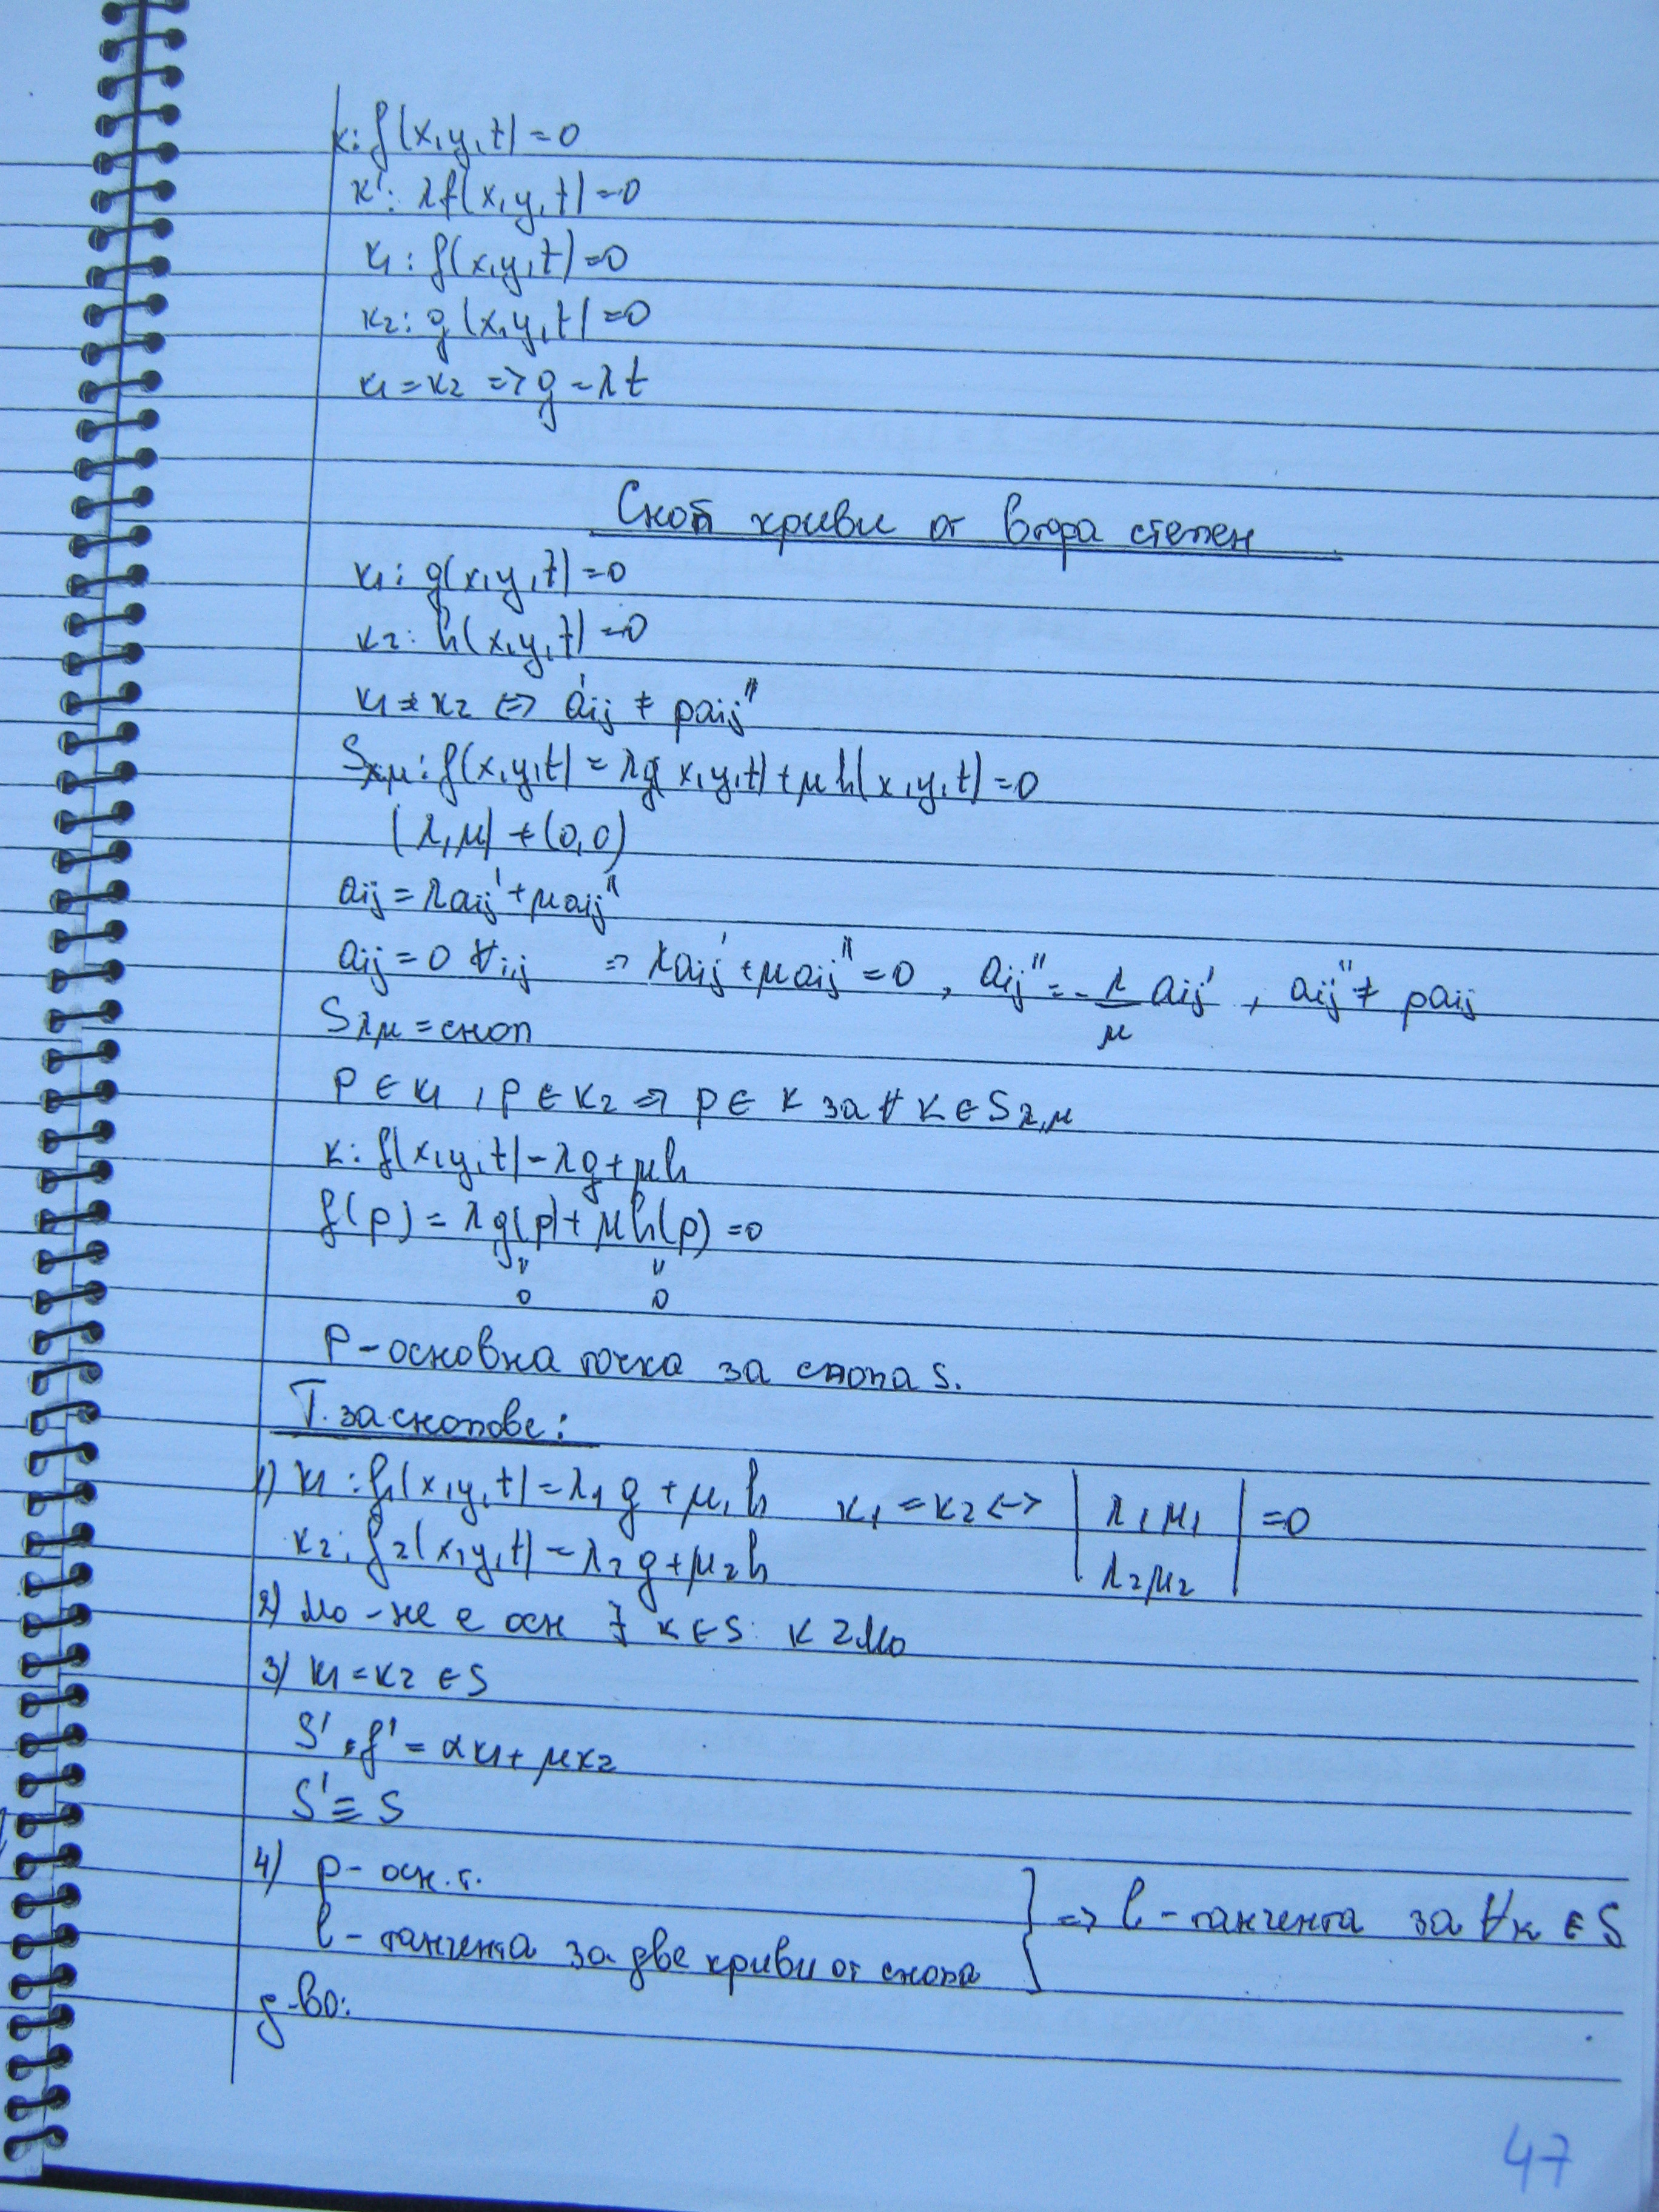 к: f(x,y,t)=0
к': λf(x,y,t)=0
к₁: f(x,y,t)=0
к₂: g(x,y,t)=0
к₁=к₂ => g=λt
Сноп криви от втора степен
к₁: g(x,y,t)=0
к₂: h(x,y,t)=0
к₁≠к₂ <=> aij' ≠ ρaij''
Sλμ: f(x,y,t)=λg(x,y,t)+μh(x,y,t)=0
(λ,μ)≠(0,0)
aij=λaij'+μaij''
aij=0 ∀i,j => λaij'+μaij''=0, aij''=-λ/μ aij', aij''≠ρaij
Sλμ=сноп
P∈к₁, p∈к₂ => p∈ к за ∀ к∈Sλ,μ
к: f(x,y,t)=λg+μh
f(p)=λg(p)+μh(p)=0
" "
0 0
P-основна точка за снопа S.
Т. за снопове:
1) к₁: f₁(x,y,t)=λ₁g+μ₁h к₁=к₂<=> |λ₁ μ₁| =0
к₂: f₂(x,y,t)=λ₂g+μ₂h |λ₂ μ₂|
2) M₀-не е осн ∃ к∈S: к ∋ M₀
3) к₁=к₂∈S
S': f'=αк₁+μк₂
S'≡S
4) p- осн.т.
l-тангента за две криви от снопа } => l-тангента за ∀к∈S
g-во:
47